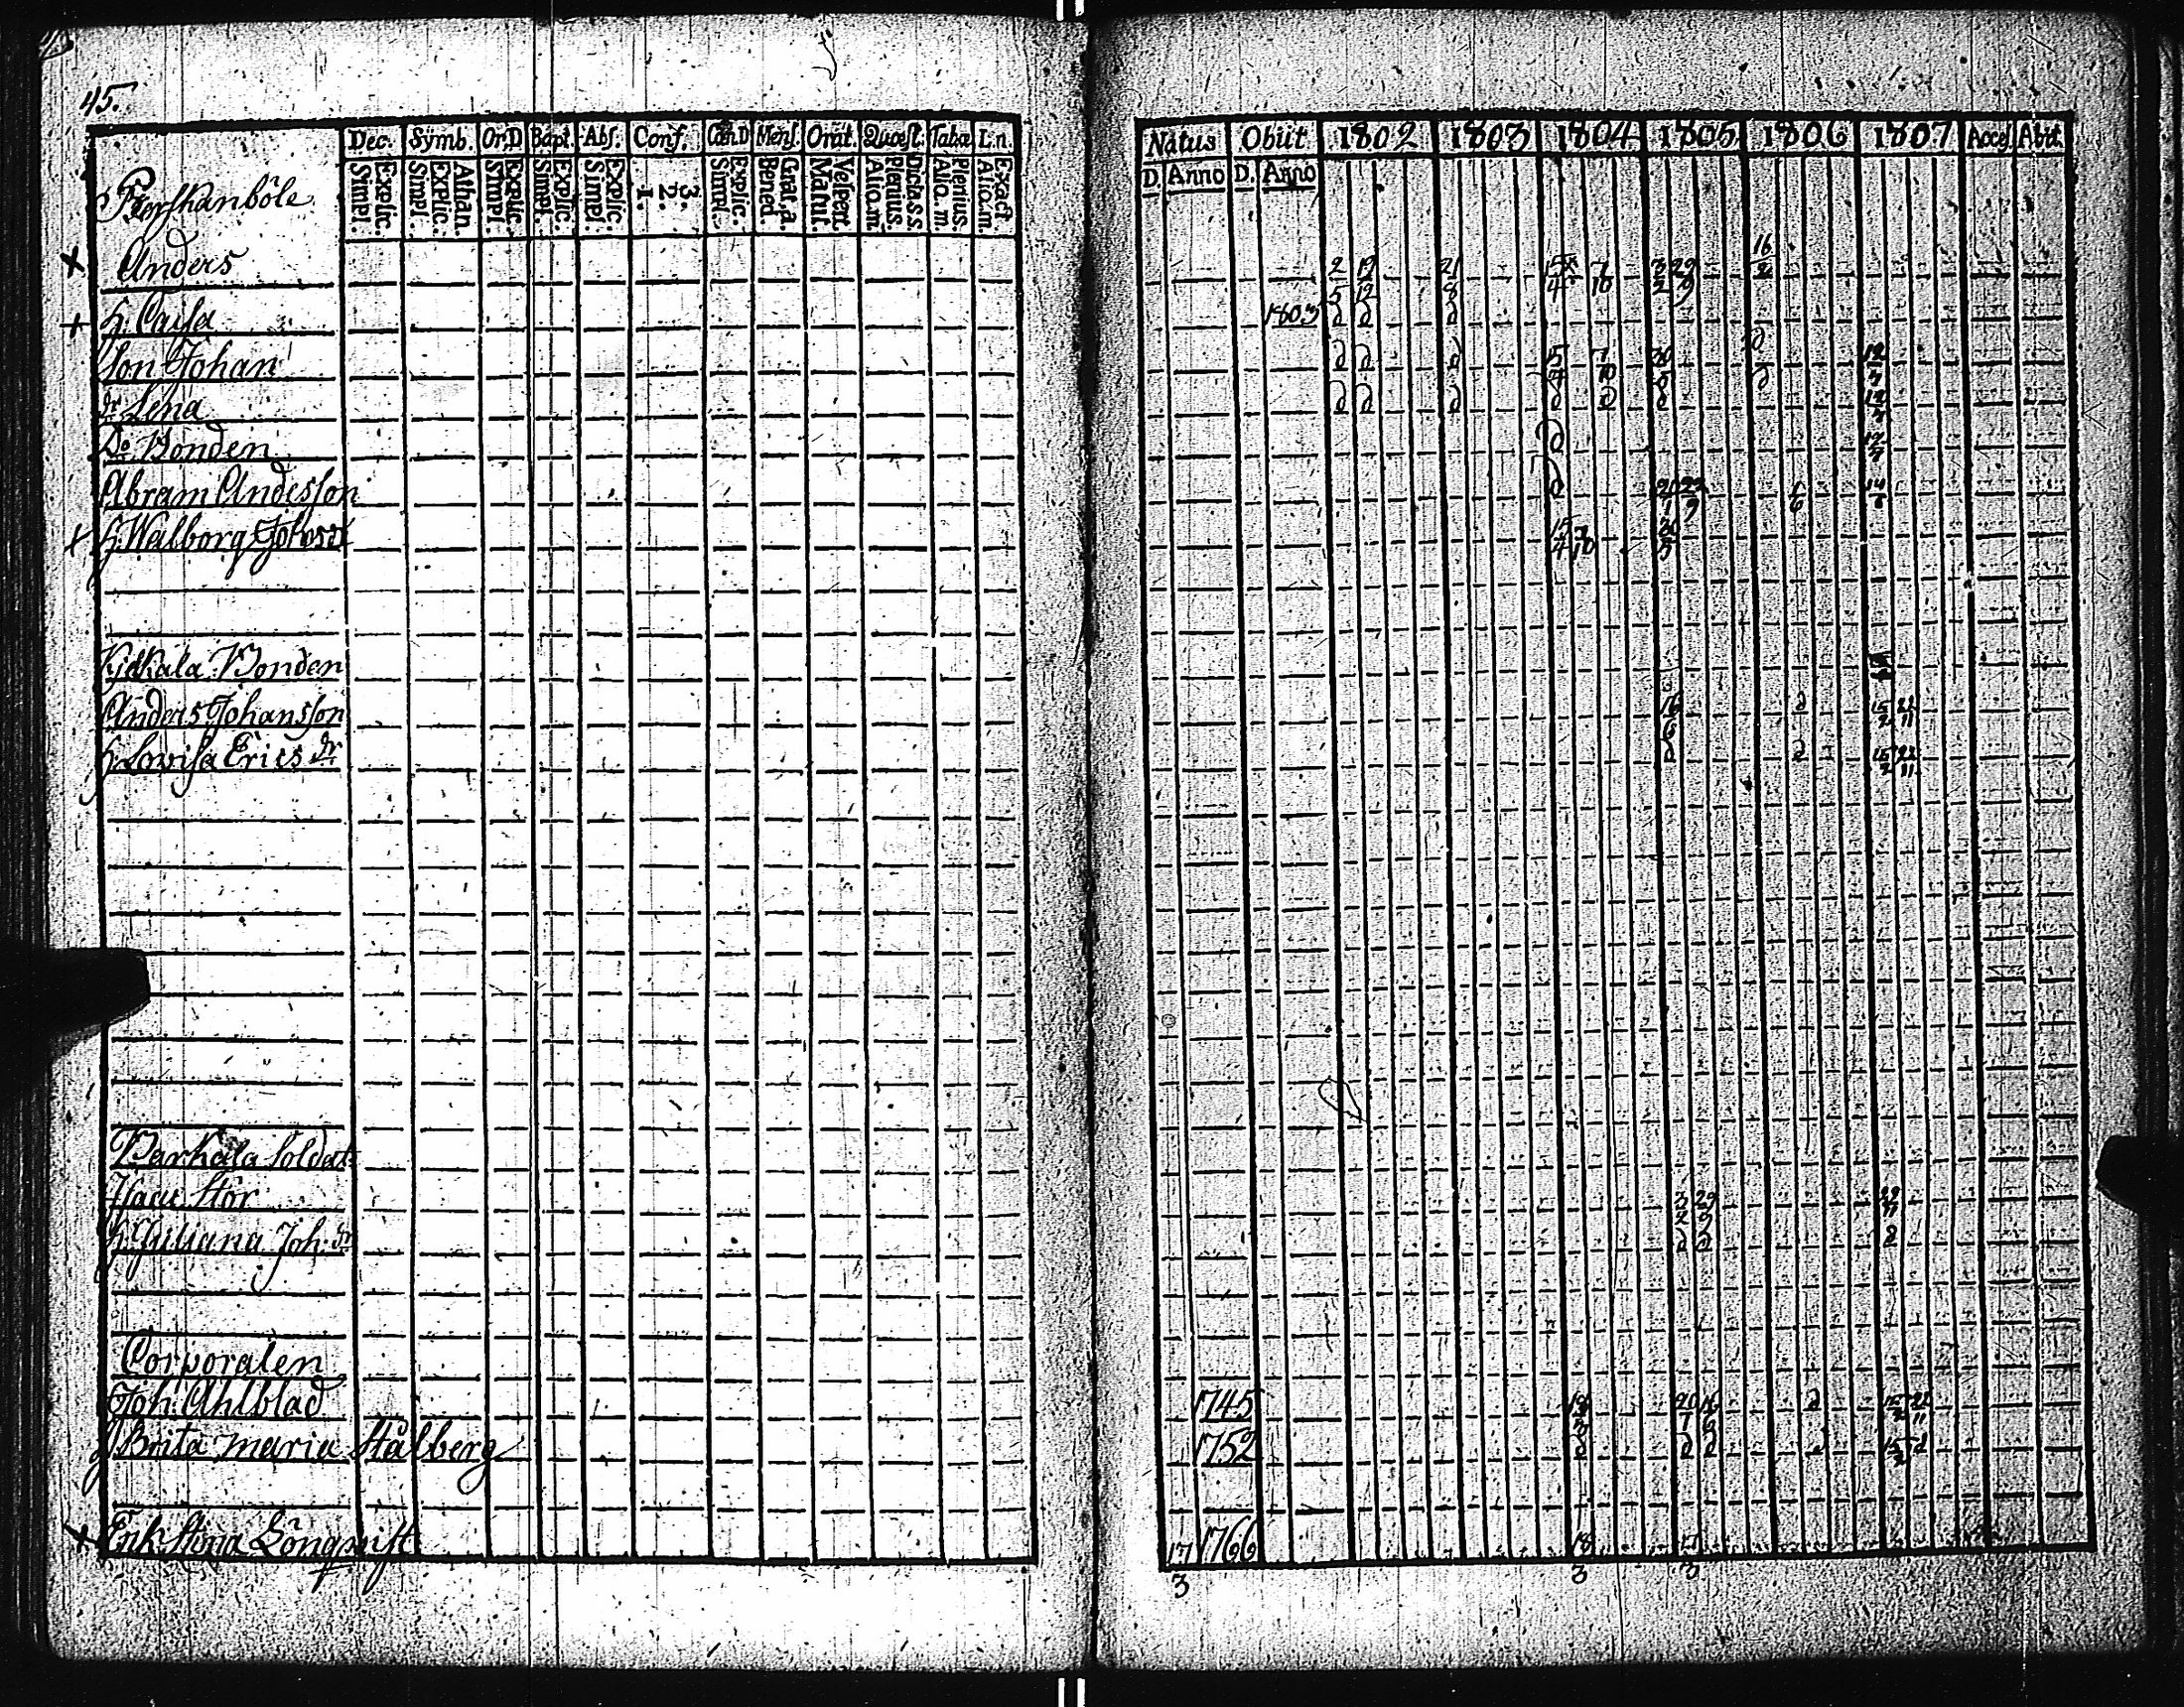 45.
Dec. Symb. Or.D Bapt. Abs. Conf. Cœn.D Mens. Orat. Quæst. Taba L.n.
Explic. Simpl. Athan. Explic. Simpl. Explic. Simpl. Explic. Simpl. Explic. Simpl. 3. 2. 1. Explic. Simpl. Grat. a. Bened. Vespert. Matut. Dicta.s.s. Plenius. Alio.m. Plenius. Alio. m. Exact. Alio.m.
Anders
h. Cajsa
Son Johan
dr Lena
Do Bonden
Abram Andesson
h. Walborg Johosdr
Bonden
Anders Johansson
h. Lovisa Ericsdr
Soldat
Isacc Stor
h. Juliana Joh: dr
Corporalen
Joh. Ahlblad
Brita Maria Stålberg
Enk. Stina Lönqvist
Natus Obiit 1802 1803 1804 1805 1806 1807 Access. Abiit
D. Anno D. Anno
16/2
2/5 19/12 21/8 15/4 7/10 3/2 29/9
1803 d d d
d d d 15/4 7/10 20/5 d 12/7
d d d d d d 12/7
d 12/7
d 20/1 29/9 1/6 14/8
15/4 7/10 20/5
16/6 d 15/2 22/11
d d 15/2 22/11
3/2 29/9 29/11
d d d
1745 18/3 20/1 16/6 d 15/2 22/11
1752 d d d d 15/2 d
17/3 1766 18/3 17/3